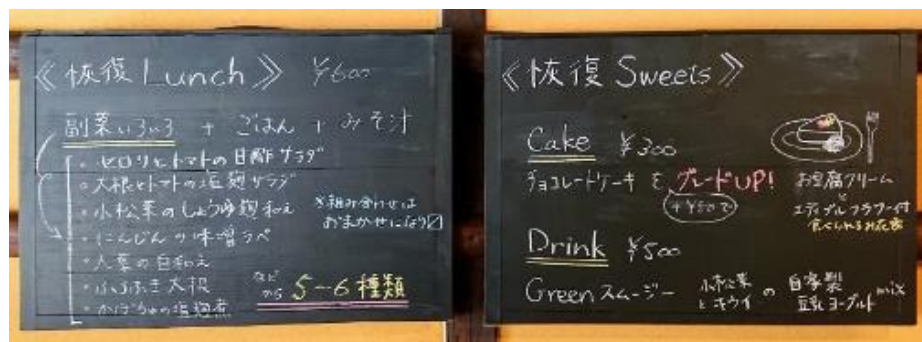 《恢復 Lunch》 ¥600
副菜いろいろ + ごはん + みそ汁
・セロリとトマトの甘酢サラダ
・大根とトマトの塩麹サラダ
・小松菜のしょうゆ麹和え
・にんじんの味噌ラペ
の白和え
・ふろふき大根
・かぼちゃの塩麹煮
※組み合わせは
おまかせになります
などから 5〜6種類
《恢復 Sweets》
Cake ¥300
チョコレートケーキ を グレードUP!
+¥50で
お豆腐クリーム
と
エディブルフラワー付
食べられるお花
Drink ¥500
Green スムージー 小松菜とキウイ の 自家製豆乳ヨーグルト mix